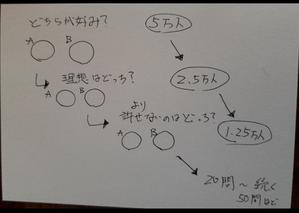 どちらが好み?
A B
5万人
理想はどっち?
A B
2.5万人
より
許せないのはどっち?
A B
1.25万人
20問〜続く
50問ほど